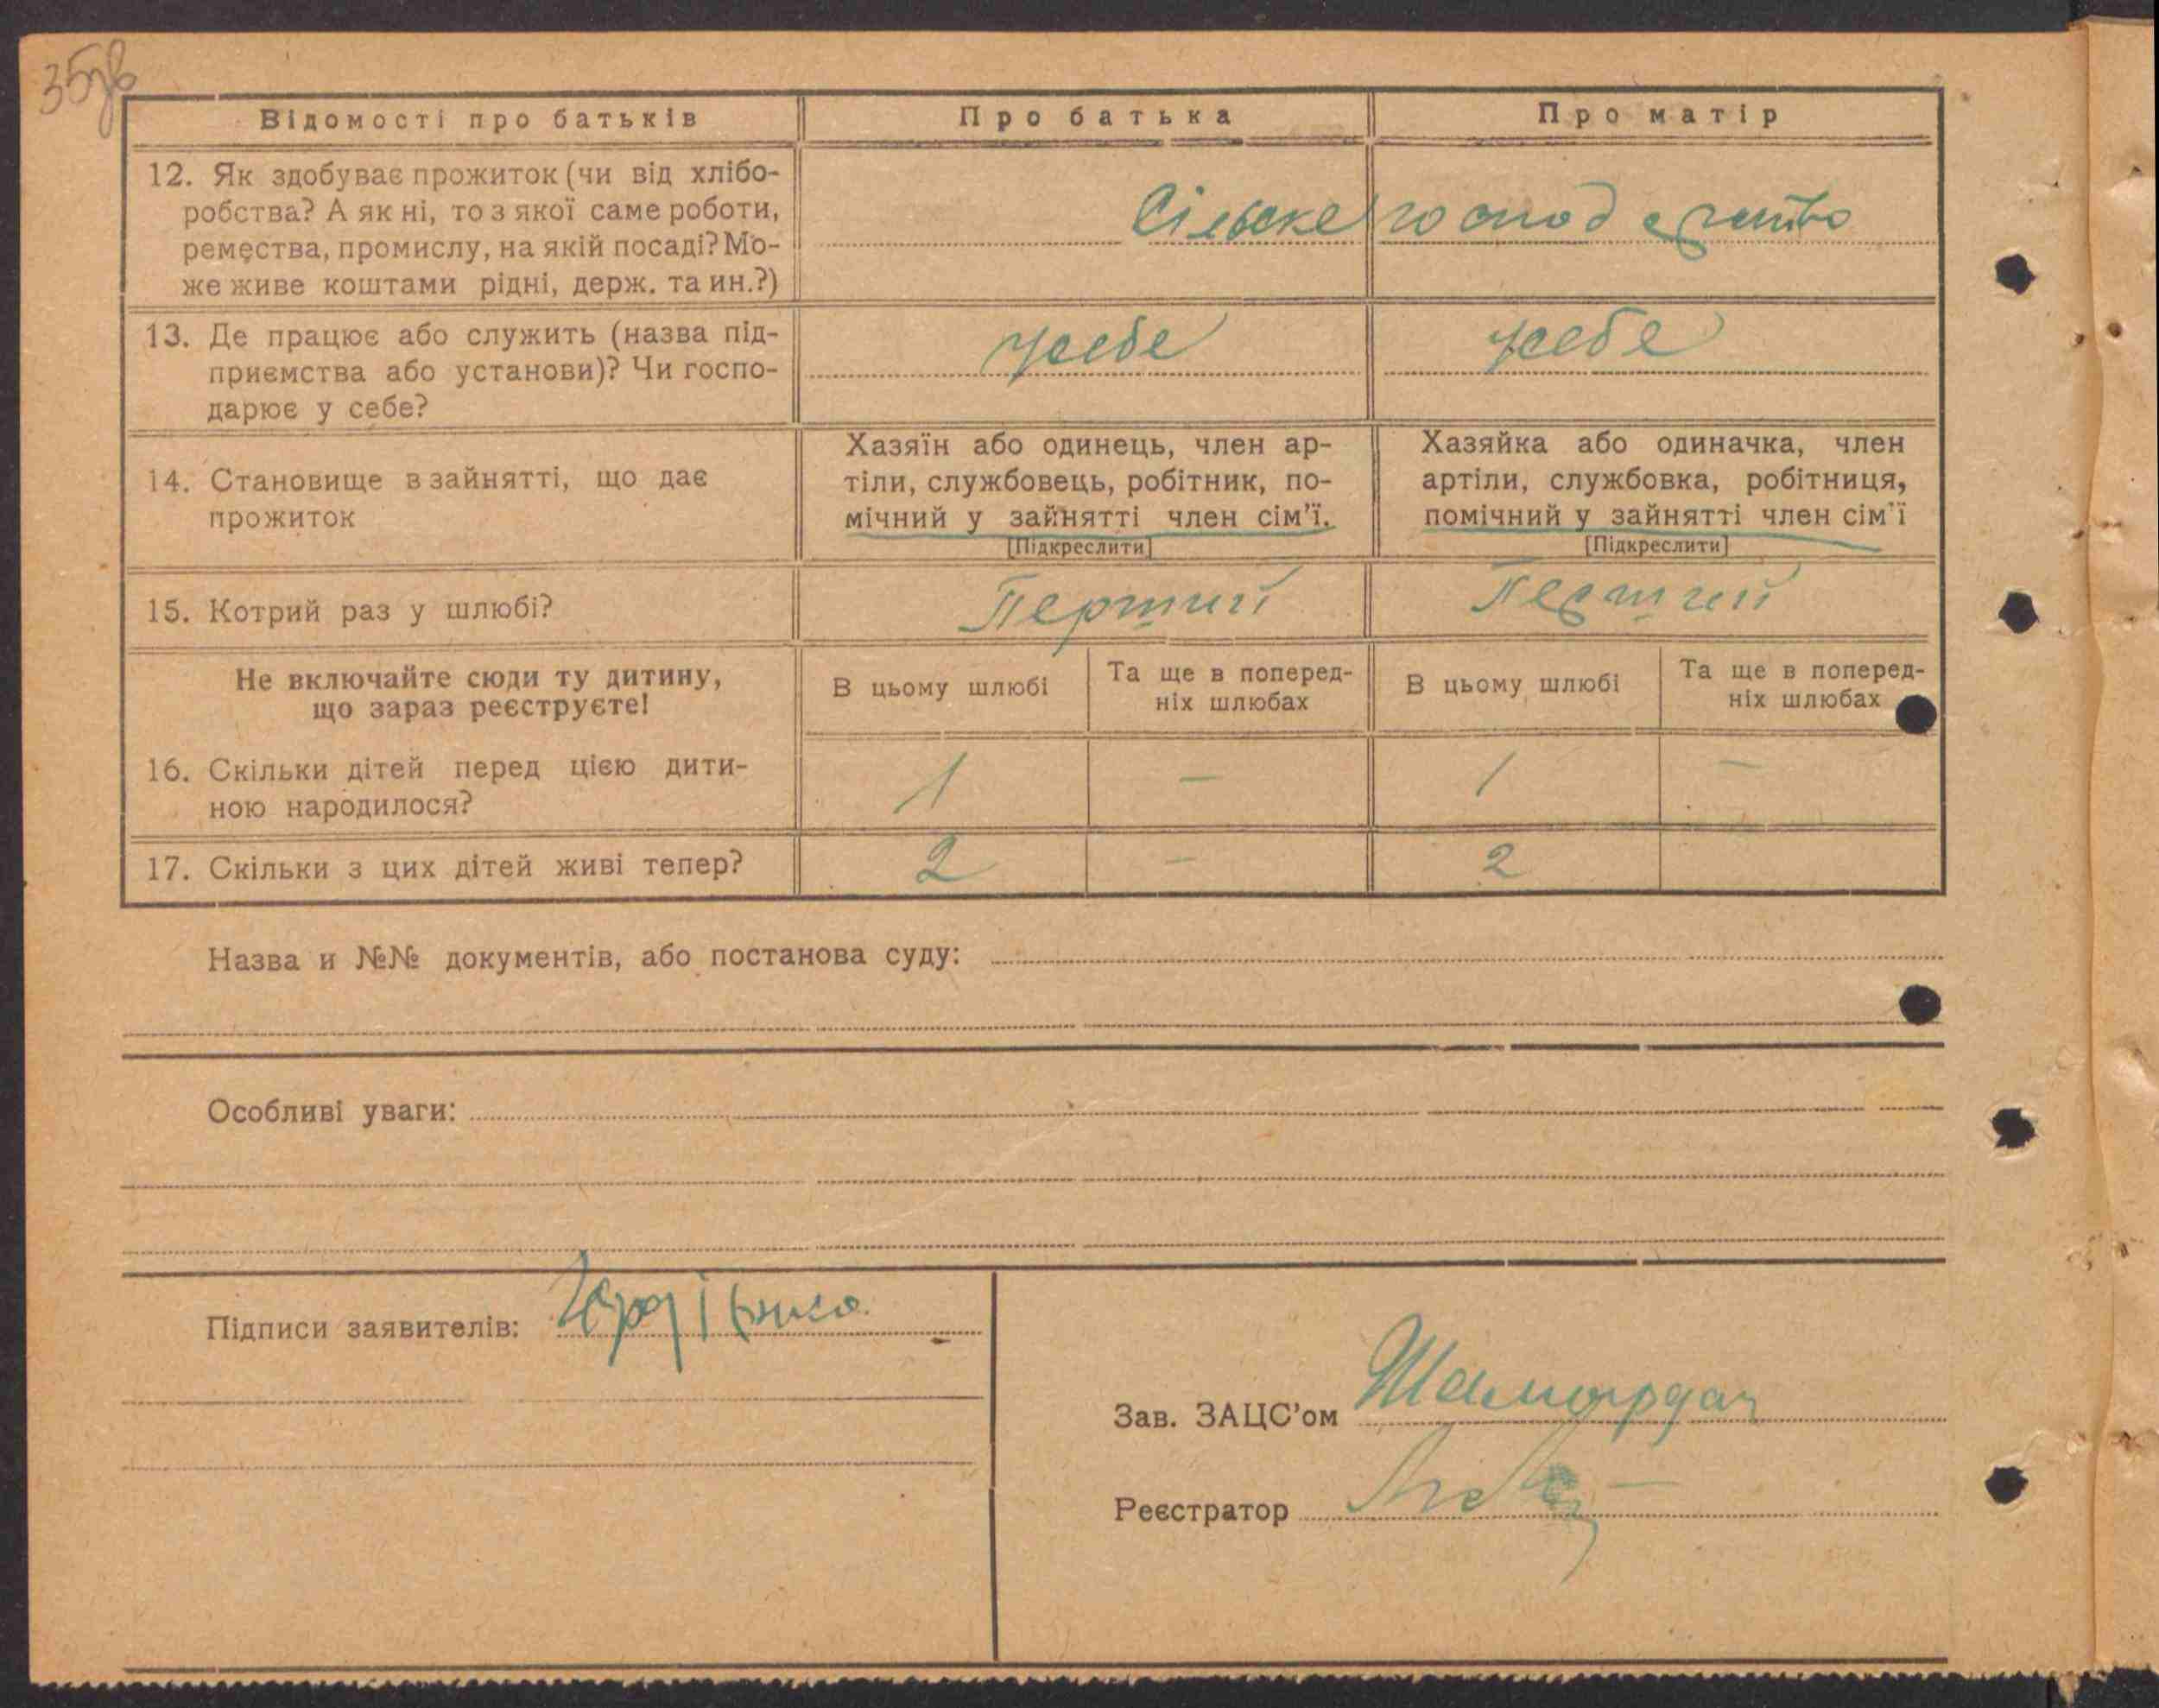 35зв
Відомості про батьків
Про батька
Про матір
12. Як здобуває прожиток (чи від хлібо-
робства? А як ні, то з якої саме роботи,
ремества, промислу, на якій посаді? Мо-
же живе коштами рідні, держ. та ин.?)
Сільске господарство
13. Де працює або служить (назва під-
приємства або установи)? Чи госпо-
дарює у себе?
усебе
усебе
14. Становище в зайнятті, що дає
прожиток
Хазяїн або одинець, член ар-
тіли, службовець, робітник, по-
мічний у зайнятті член сім'ї.
[Підкреслити]
Хазяйка або одиначка, член
артіли, службовка, робітниця,
помічний у зайнятті член сім'ї
[Підкреслити]
15. Котрий раз у шлюбі?
Перший
Перший
Не включайте сюди ту дитину,
що зараз реєструєте!
В цьому шлюбі
Та ще в поперед-
ніх шлюбах
В цьому шлюбі
Та ще в поперед-
ніх шлюбах
16. Скільки дітей перед цією дити-
ною народилося?
1
—
1
—
17. Скільки з цих дітей живі тепер?
2
—
2
Назва и №№ документів, або постанова суду:
Особливі уваги:
Підписи заявителів:
Зав. ЗАЦС'ом
Реєстратор